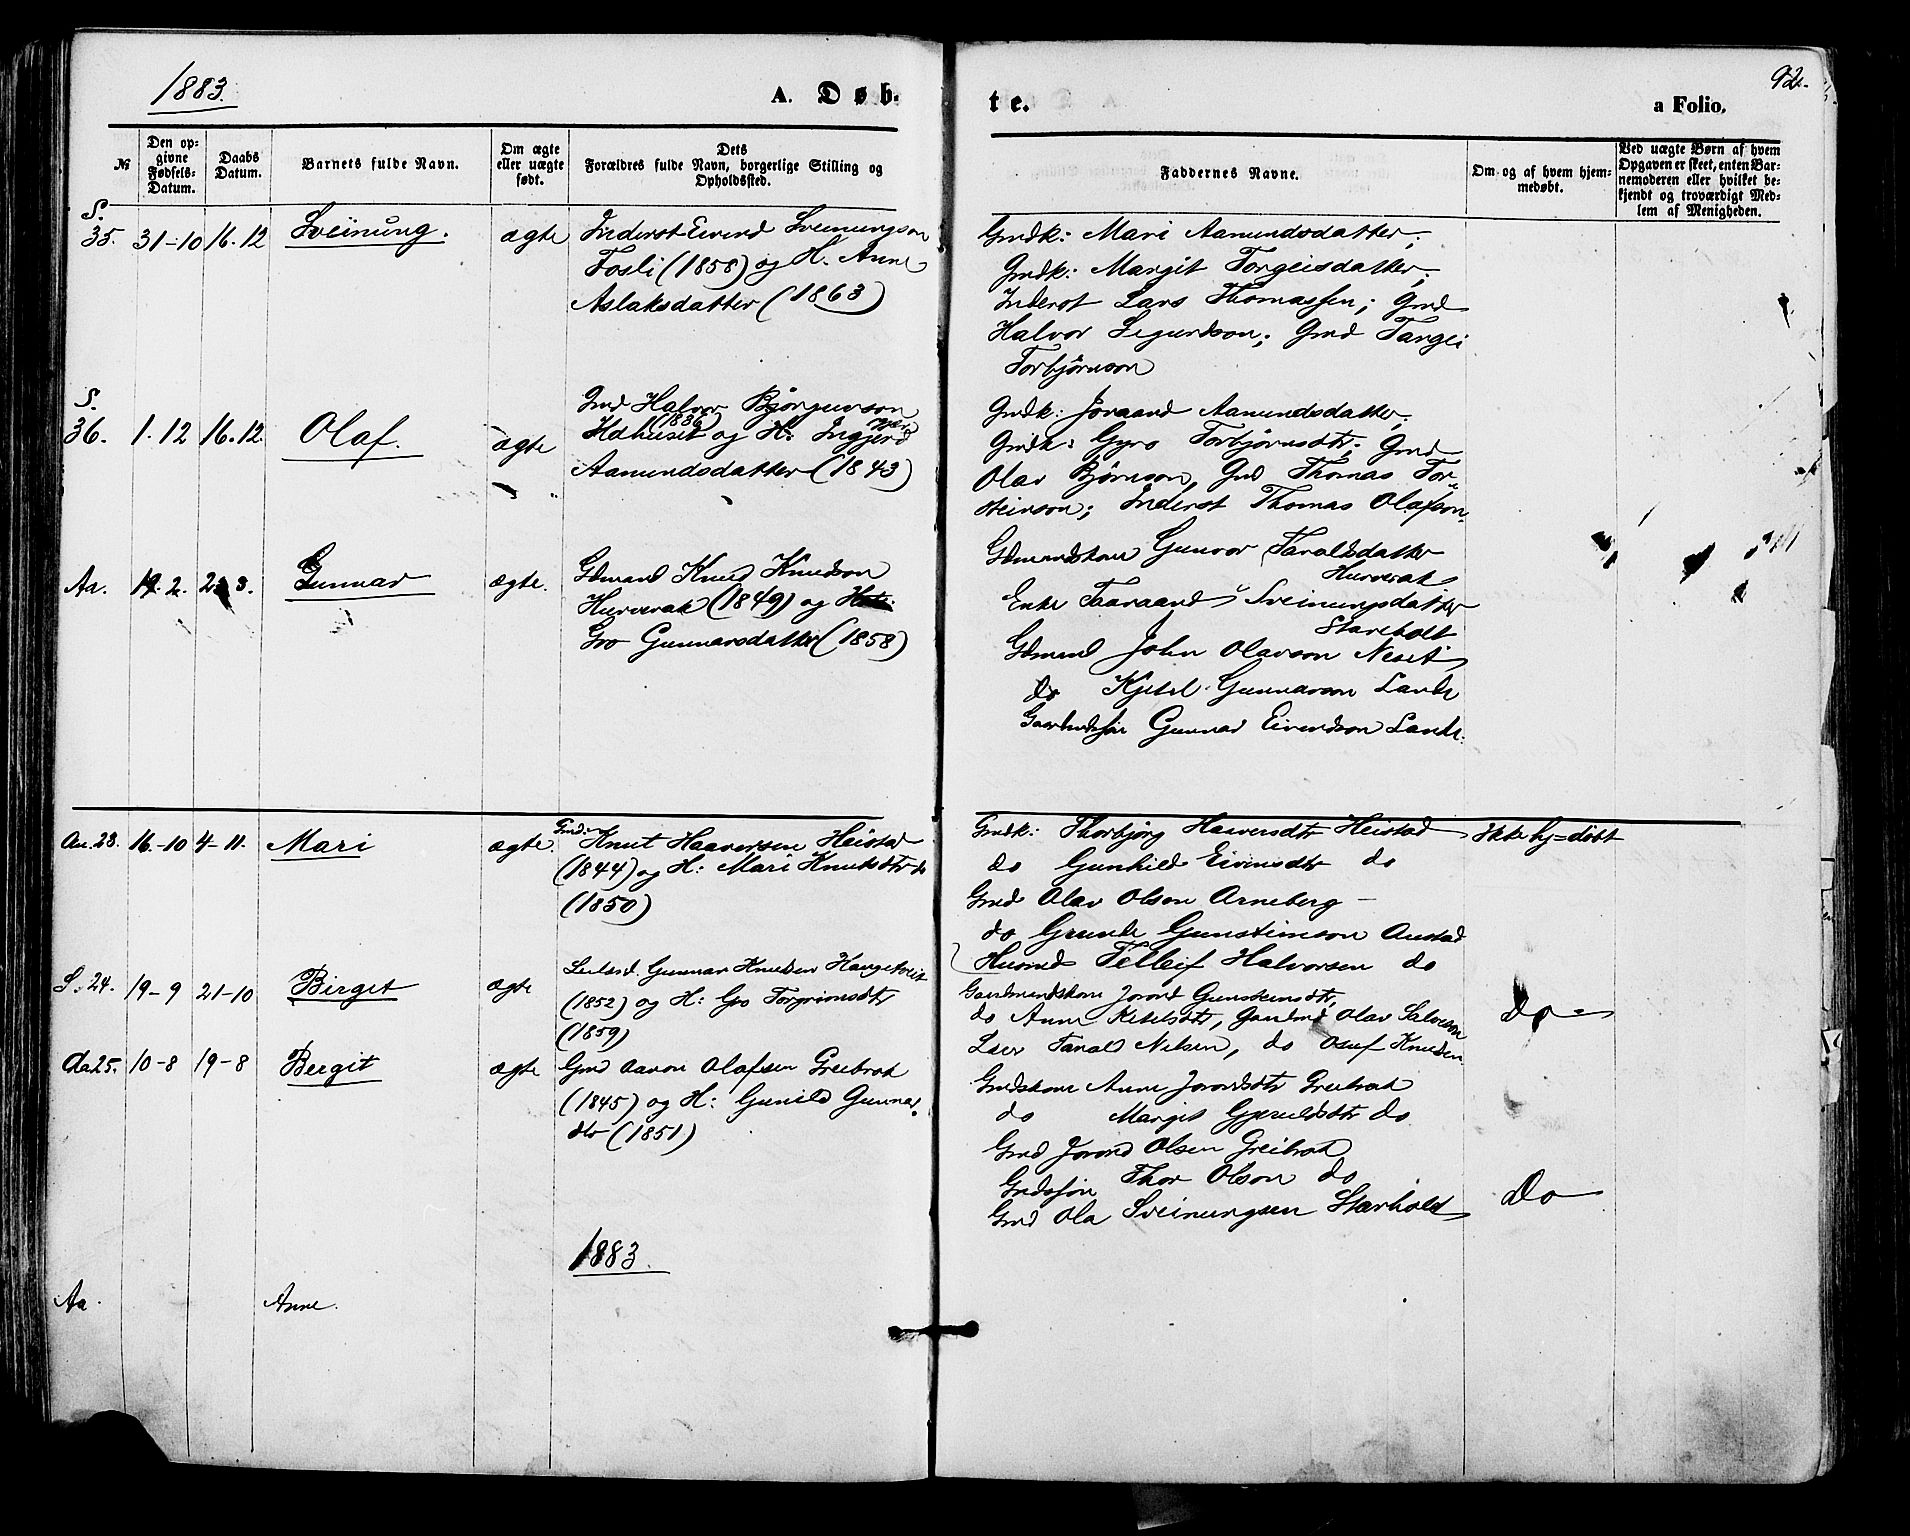 1883.
A. Døb-
te.
92.
a Folio.
№
Den op-
givne
Fødsels-
Datum.
Daabs
Datum.
Barnets fulde Navn.
Om ægte
eller uægte
født.
Dets
Forældres fulde Navn, borgerlige Stilling og
Opholdssted.
Faddernes Navne.
Om og af hvem hjem-
medøbt.
Ved uægte Børn af hvem
Opgaven er skeet, enten Bar-
nemoderen eller hvilket be-
kjendt og troværdigt Med-
lem af Menigheden.
S.
35. 31-10 16.12 Sveinung. ægte Inderst Eivind Sveinungson
Fosli (1858) og H. Anne
Aslaksdatter (1863)
Gmdk: Mari Aamundsdatter;
Gmdk: Margit Torgeisdatter;
Inderst Lars Thomassen; Gmd
Halvor Sigurdson; Gmd Targei
Torbjörnson
S.
36. 1.12 16.12 Olaf. ægte Gmd Halvor Björguvson
(1836)
Hahuset og H. Ingjerd
Aamundsdatter (1843)
Gmdk: Joraand Aamundsdatter;
Gmdk: Gyro Torbjörnsdtr; Gmd
Olav Björnson, Gmd Thomas Tor-
steinson; Inderst Thomas Olafson.
Aa. 19.2. 3. Gunnar ægte. Gdmand Knud Knudson
Hurverak (1849) og
Gro Gunnarsdatter (1858)
Gdmandskone Gunvor Taraldsdatter
Hurverak
Enke Taaraand Sveinungsdatter
Stareholt
Gdmand John Olavson Neset
do Kjetil Gunnarson Lande
Gunnar Eivindson Lande.
Aa. 23. 16-10 4-11. Mari ægte. Gmd: Knut Haaversen Heistad
(1844) og H: Mari Knutsdtr do
(1850)
Gmdk: Thorbjörg Haversdtr Heistad Ikke hj=döbt
do Gunhild Eivinsdtr do
Gmd Olav Olson Arneberg -
do Grunde Gunsteinson Austad
Husmd Tellef Halvorsen do
S. 24. 19-9 21-10 Birget ægte Gunnar Knudsen Haugetveit
(1852) og H: Gro Torgrimsdtr
(1859)
Gaardmandskone Jorond Gunsteinsdtr,
do Anne Ketelsdtr, Gaardmd Olav Salveson do -
Tarald Nilsen, do Osuf Knudsen
Aa 25. 10-8 19-8 Bergit ægte Gmd Aavon Olafsen Greibrok
(1845) og H: Gunild Gunnar
dtr (1851)
Gmdskone Anne Jorondsdtr Greibrok
do Margit Gjeruldsdtr do
Gmd Jorond Olsen Greibrok
Gmdssøn Thor Olson do
Gmd Ola Sveinungsen Starholt Do
1883.
Aa. Anne.